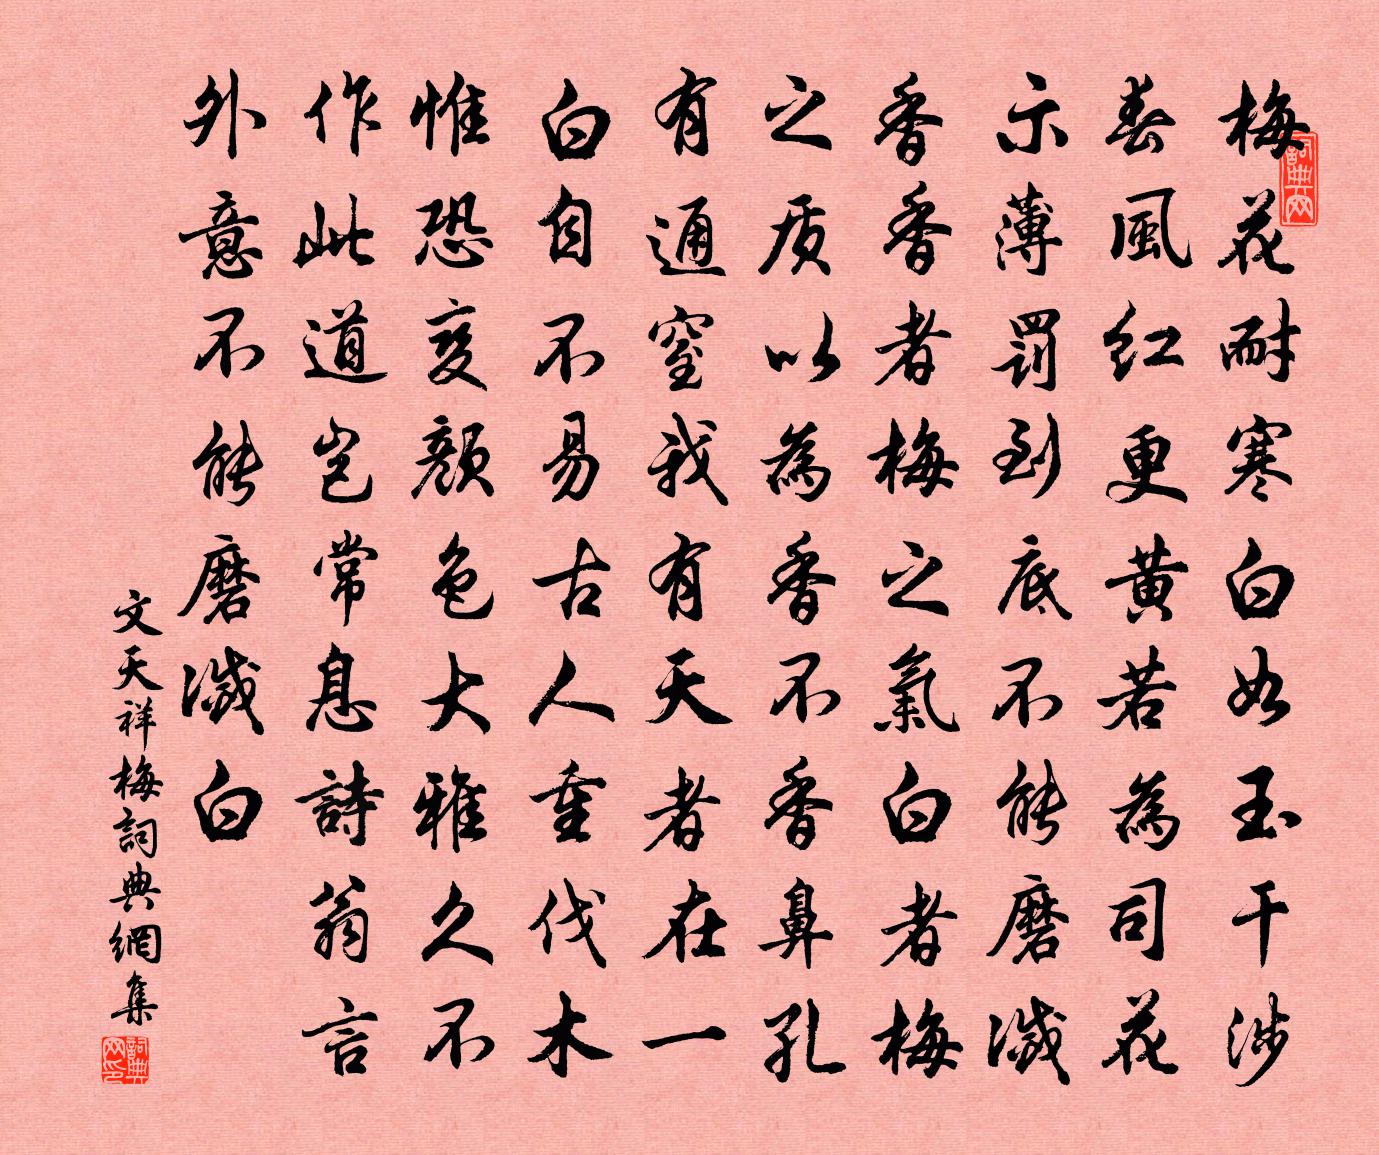 梅花耐寒白如玉干涉
春風红更黄若為司花
示薄罰到底不能磨滅
香香者梅之氣白者梅
之质以為香不香鼻孔
有通窒我有天者在一
白自不易古人重伐木
惟恐变顏色大雅久不
作此道岂常息詩翁言
外意不能磨滅白
文天祥梅詞典網集
詞典网
詞典网印